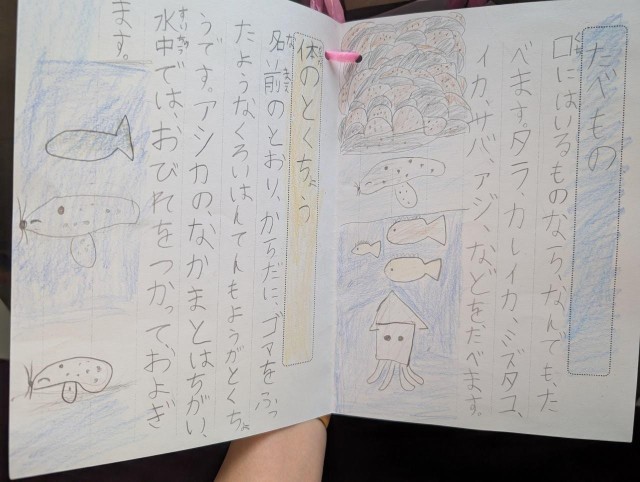 たべもの
口にはいるものなら、なんでも、た
べます。タラ、カレイカ、ミズタコ、
イカ、サバ、アジ、などをたべます。
体のとくちょう
名前のとおり、からだに、ゴマをふっ
たようなくろいはんてんもようがとくちょ
うです。アシカの、なかまとはちがい、
水中では、おびれをつかって、およぎ
ます。